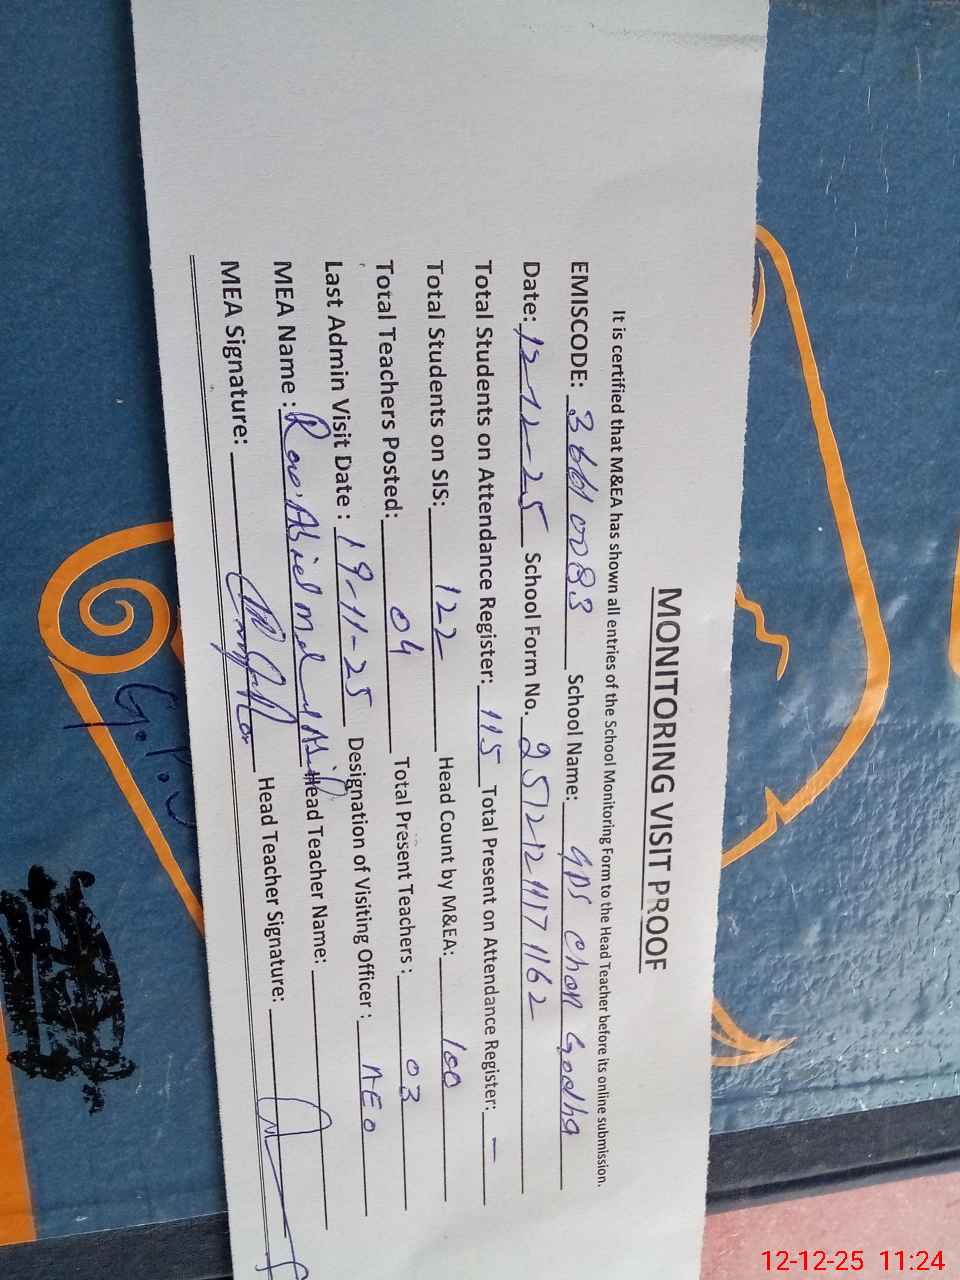 MONITORING VISIT PROOF
It is certified that M&EA has shown all entries of the School Monitoring Form to the Head Teacher before its online submission.
EMISCODE: 36610083 School Name: GPS Chan Godha
Date: 12-12-25 School Form No. 25121211171162
Total Students on Attendance Register: 115 Total Present on Attendance Register: -
Total Students on SIS: 122 Head Count by M&EA: 100
Total Teachers Posted: 04 Total Present Teachers : 03
Last Admin Visit Date : 19-11-25 Designation of Visiting Officer : AEO
MEA Name : Rao Head Teacher Name:
MEA Signature: Head Teacher Signature:
G.P.S
12-12-25 11:24